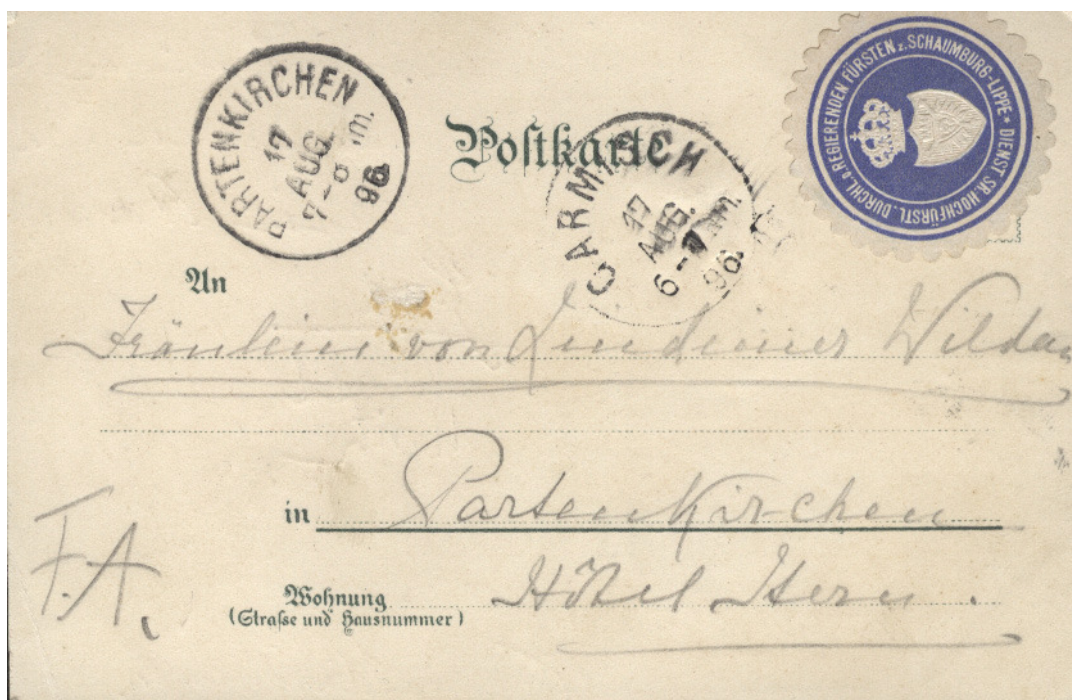 PARTENKIRCHEN
17
AUG.
7-8 nm.
96.
Postkarte
GARMISCH
17
AUG.
6-7 nm.
96.
DIENST SR. HOCHFÜRSTL. DURCHL. D. REGIERENDEN FÜRSTEN z. SCHAUMBURG-LIPPE *
An
Fräulein von Lindeiner Wildau
in Partenkirchen
F. A.
Wohnung Hôtel Stern.
(Straße und Hausnummer)